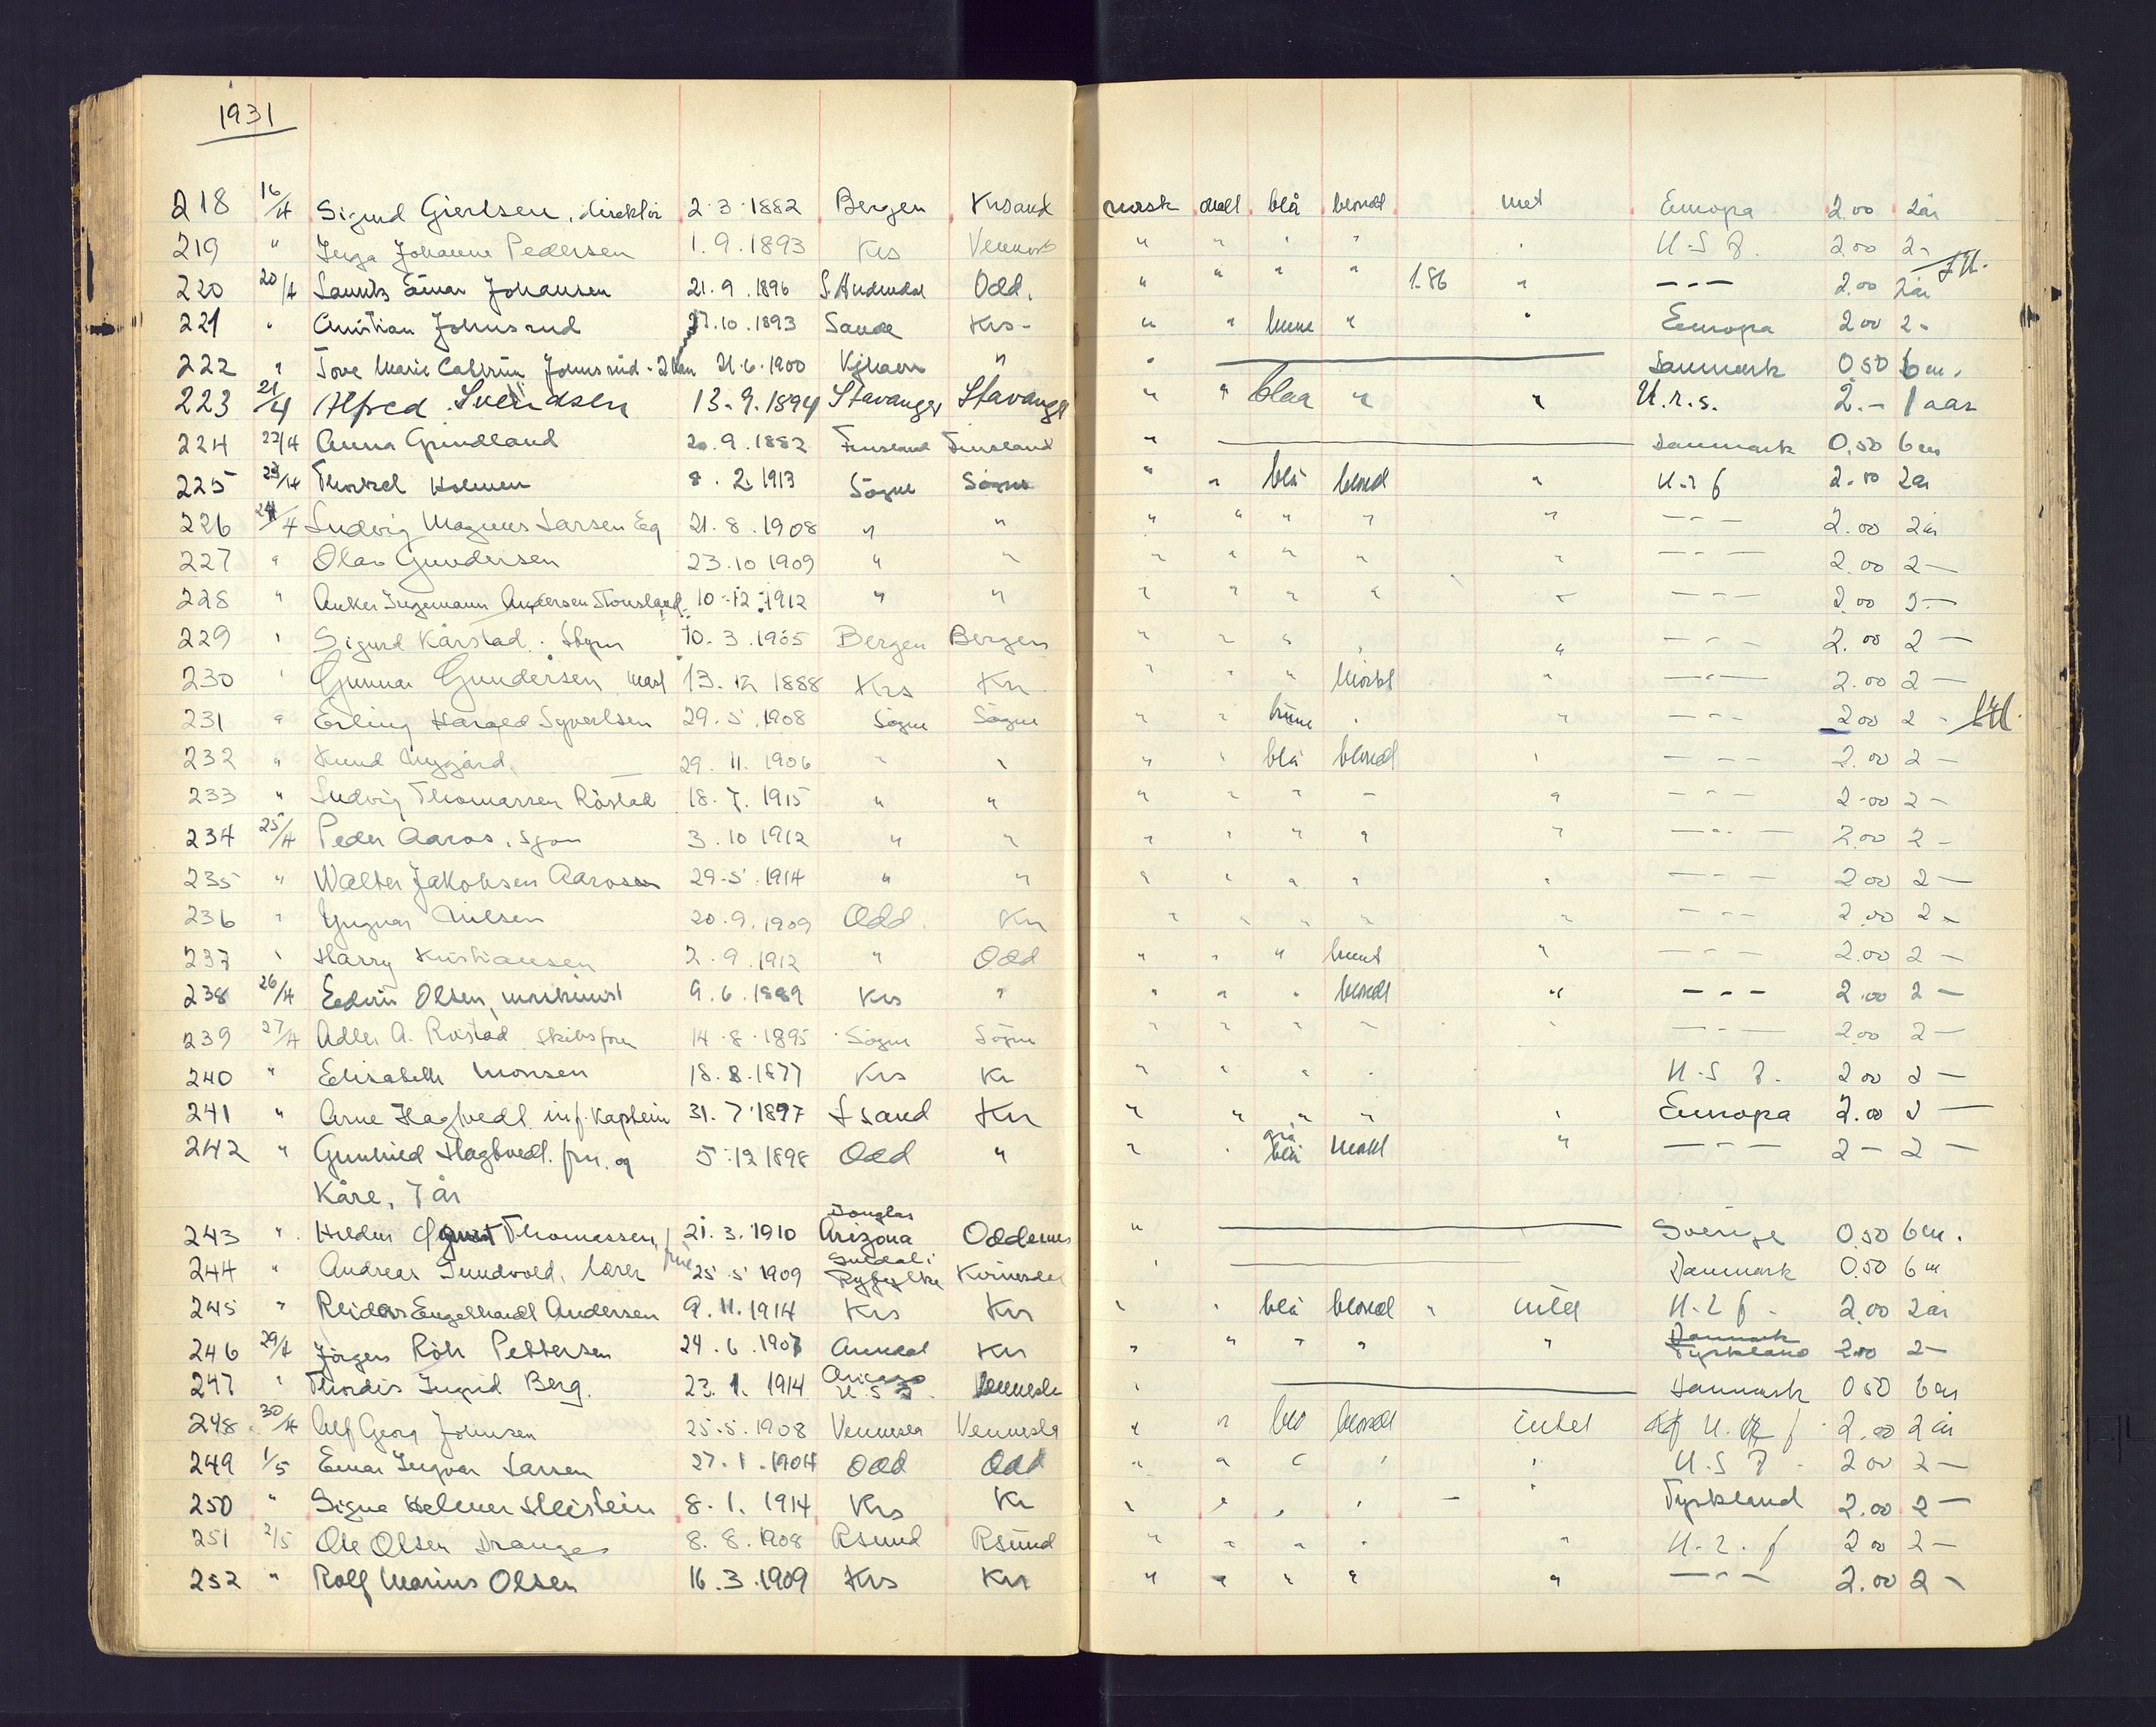 1931
218 16/4 Sigurd Giertsen, direktör 2.3.1882 Bergen Krsand norsk ovalt blå blondt intet Europa 2.00 2 år
219 " Inga Johanne Pedersen 1.9.1893 Krs Vennesla " " " " " U.S.A. 2.00 2 -
220 20/4 Lauritz Einar Johansen 21.9.1896 Odd. " " " " 1.86 " - - - 2.00 2 år
221 " Christian Johnsrud 27.10.1893 Sande Krs. " " brune " " Europa 2.00 2 -
222 " Tove Marie Johnsrud 21.6.1900 Kjhavn " " Danmark 0.50 6 m.
223 21/4 Alfred Svendsen 13.9.1894 Stavanger Stavanger " " blaa " " U.r.s. 2.- 1 aar
224 22/4 Anna Grindland 20.9.1882 Finsland Finsland " Danmark 0.50 6 m
225 23/4 Holmen 8.2.1913 Sögne Sögne " " blå blond " U.r.f 2.00 2 år
226 24/4 Ludvig Magnus Larsen Eeg 21.8.1908 " " " " " " " - " - 2.00 2 år
227 " Olav Gundersen 23.10.1909 " " " " " " " - " - 2.00 2 -
228 " Anker Ingemann Andersen 10.12.1912 " " " " " " " - " - 2.00 2 -
229 " Sigurd Kårstad. 10.3.1905 Bergen Bergen " " " " " - " - 2.00 2 -
230 " Gunnar Gundersen, mask 13.12.1888 Krs Krs " " " mörkt " - " - 2.00 2 -
231 " Erling Harald Syvertsen 29.5.1908 Sögne Sögne " " brune " " - - - 2.00 2 -
232 " Knud Nygård. 29.11.1906 " " " " blå blondt " - - - 2.00 2 -
233 " Ludvig Thomassen Röstad 18.7.1915 " " " " " " " - " - 2.00 2 -
234 25/4 Peder Aaros, sjøm 3.10.1912 " " " " " " " - " - 2.00 2 -
235 " Walter Jakobsen Aarosen 29.5.1914 " " " " " " " - - - 2.00 2 -
236 " Yngvar Nilsen 20.9.1909 Odd. Krs " " " " " - - - 2.00 2 -
237 " Harry Kristiansen 2.9.1912 " Odd " " " brunt " - - - 2.00 2 -
238 26/4 Edvin Olsen, maskinist 9.6.1889 Krs " " " " blondt " - - - 2.00 2 -
239 27/4 Adler A. Röstad. skibsfører 14.8.1895 Sögne Sögne " " " " " - - - 2.00 2 -
240 " Elisabeth Monsen 18.8.1877 Krs Kr " " " " U.S.A. 2.00 2 -
241 " Arne Hagtvedt inf. kaptein 31.7.1897 Krs " " " " " Europa 2.00 2 -
242 " Gunhild Hagtvedt. fru. og 5.12.1898 Odd " " " grå blå mörkt " - - - 2 - 2 -
Kåre, 7 år
243 " Thomassen, frue 21.3.1910 Douglas Arizona Oddernes " Sverige 0.50 6 m.
244 " Andreas Sundvold, lærer 25.5.1909 Suldal i Ryfylke Kvinesdal " Danmark 0.50 6 m
245 " Reidar Engelhardt Andersen 9.11.1914 Krs Krs " " blå blondt " intet U.r.f. 2.00 2 år
246 29/4 Jörgen Röh Pettersen 24.6.1907 Arendal Krs " " " " " Danmark Tyskland 2.00 2 -
247 " Thordis Ingrid Berg. 23.1.1914 U.S.A. Vennesla " Danmark 0.50 6 m
248 30/4 Alf Georg Johnsen 25.5.1908 Vennesla Vennesla " " blå blondt intet U.r.f. 2.00 2 år
249 1/5 Einar Ingvar Larsen 27.1.1904 Odd Odd " " " " " U.S.A. 2.00 2 -
250 " Signe Helmer 8.1.1914 Krs Kr " " " " - " Tyskland 2.00 2 -
251 2/5 Ole Olsen Drange 8.8.1908 Rsund Rsund " " " " " U.r.f 2.00 2 -
252 " Rolf Marius Olsen 16.3.1909 Krs Krs " " " " " - " - 2.00 2 -